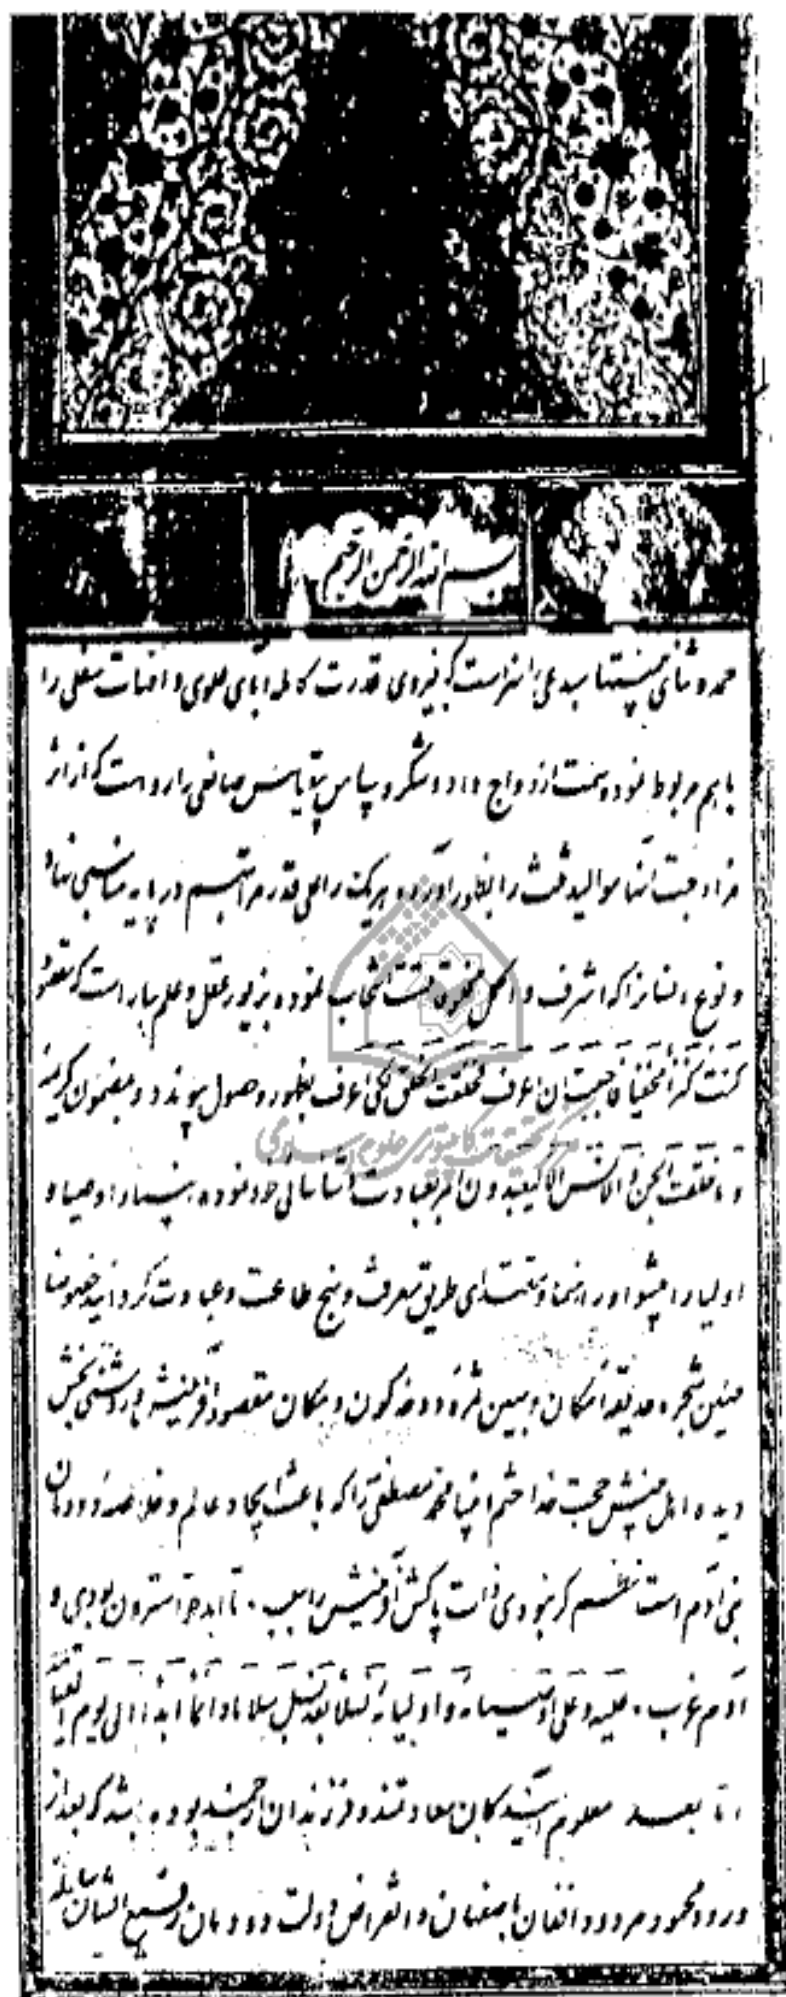 بسم الله الرحمن الرحیم
حمد و ثنای مبدعی را سزاست که نیروی قدرت کامله آبای علوی و امهات سفلی را
باهم مربوط نموده سمت ازدواج داد و شکر و سپاس صانعی را رواست که از اثر
مزاوجت آنها موالید ثلث را بظهور آورده هر یک را علی قدر مراتبهم در پایه مناسبی نهاد
و نوع انسانرا که اشرف و اکمل مخلوقاتست انتخاب نموده بزیور عقل و علم بیاراست که
کنت کنزاً مخفیاً فاحببت ان اعرف فخلقت الخلق لکی اعرف بظهور وصول پیوندد و بمضمون کریمه
و ما خلقت الجن و الانس الا لیعبدون امر بعبادت خود نموده انبیا و اوصیا و
اولیا را پیشوا و راهنما و مقتدای طریق معرفت و نهج طاعت و عبادت گردانید خصوصا
شجره حدیقه امکان و ثمره دوحه کون و مکان مقصود آفرینش و روشنی بخش
دیده اهل بینش حجت خدا ختم انبیا محمد مصطفی را که باعث ایجاد عالم و خلاصه دودمان
بنی آدم است نظم گر نبودی ذات پاکش آفرینش را سبب تا ابد حوا سترون بودی و
آدم عزب علیه و علی اوصیائه و اولیائه نسلاً بعد نسل سلاما دائما ابدا الی یوم
اما بعد معلوم آیندگان سعادتمند و فرزندان ارجمند بوده باشد که بعد از
ورود محمود مردود افغان باصفهان و انقراض دولت دودمان رفیع الشان
مرکز تحقیقات کامپیوتری علوم اسلامی